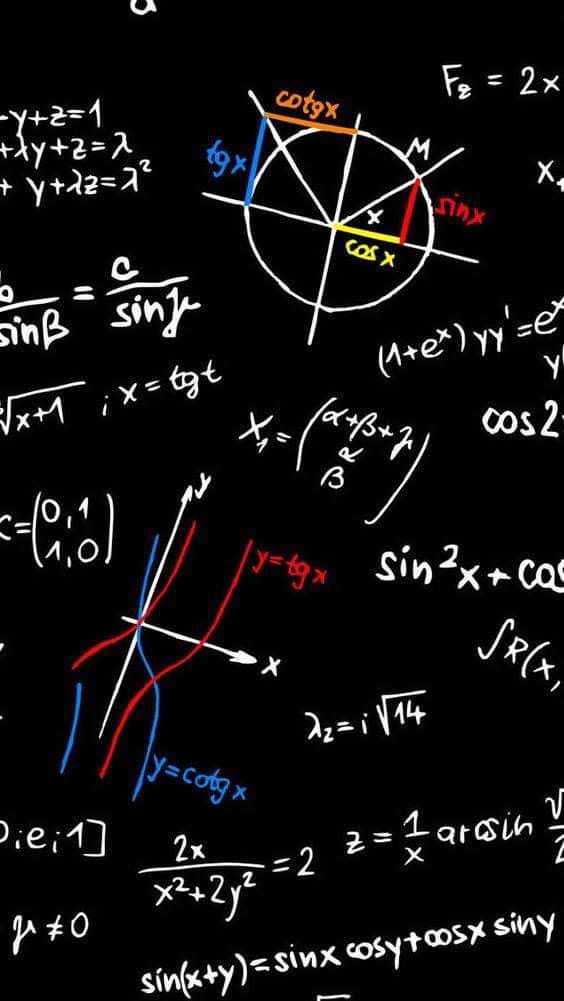 a
F₂ = 2x
-y+z=1
+λy+z=λ
+ y+λz=λ²
cotgx
tgx
M
x
sinx
cosx
b/sinβ = c/sinγ
(1+eˣ)yy'=eˣ
y
∛x+1 ; x=tgt
cos2
X₁=(α+β+γ
α
β)
C=(0,1
1,0)
y
y=tgx
x
y=cotgx
sin²x+cos
∫R(x,
λ₂=i√14
;e;1]
2x/x²+2y² =2
z=1/x arcsin √
2
μ≠0
sin(x+y)=sinx cosy+cosx siny